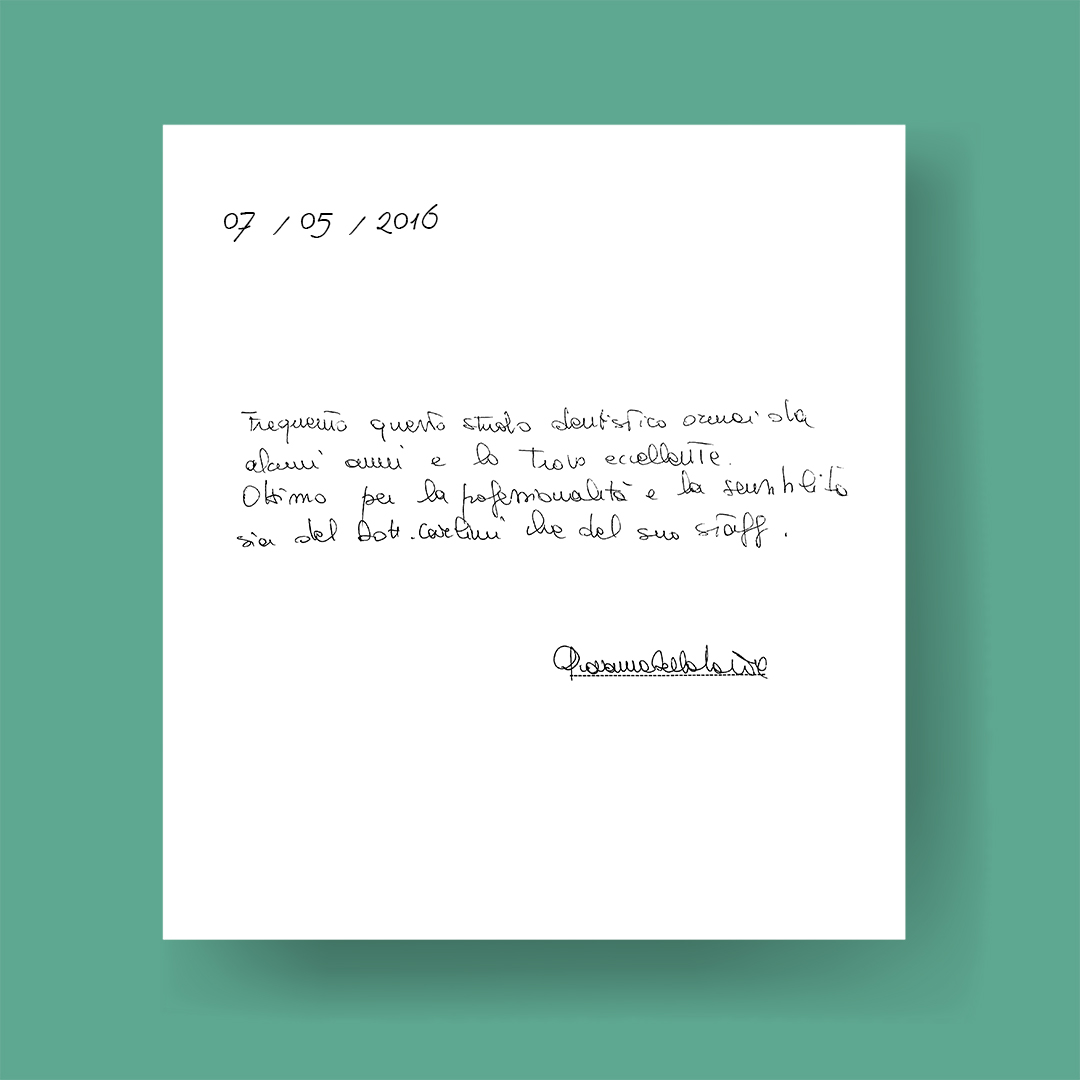 07 / 05 / 2016
Frequento questo studio dentistico ormai da
alcuni anni e lo trovo eccellente.
Ottimo per la professionalità e la sensibilità
sia del Dott. Carlini che del suo staff.